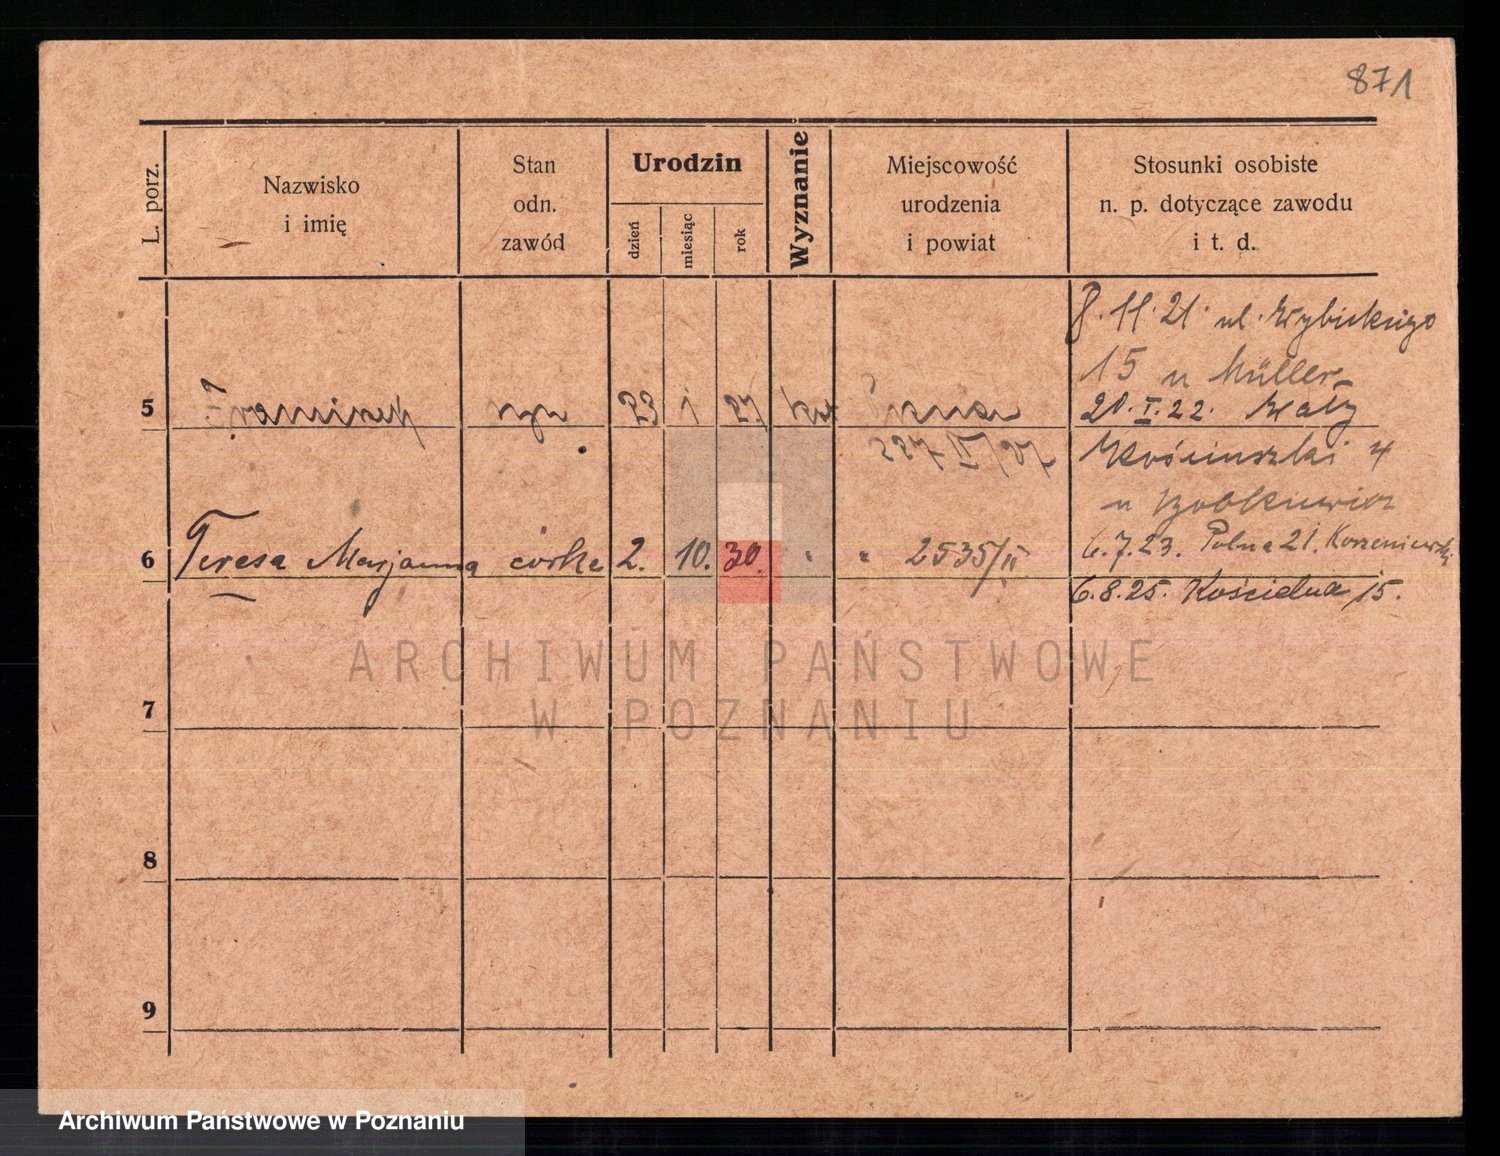 871
L. porz.
Nazwisko
i imię
Stan
odn.
zawód
Urodzin
dzień
miesiąc
rok
Wyznanie
Miejscowość
urodzenia
i powiat
Stosunki osobiste
n. p. dotyczące zawodu
i t. d.
8. 11. 21. ul. Wybickiego
15 u Müller
5 syn 23 1 27 kat
21. I. 22. Mały
Kościuszki 4
u
6 Teresa Marjanna córka 2. 10. 30. " " 2535/II
6.7.23. Polna 21. Korzeniewski
6.8.25. Kościelna 15.
ARCHIWUM PAŃSTWOWE
W POZNANIU
7
8
9
Archiwum Państwowe w Poznaniu